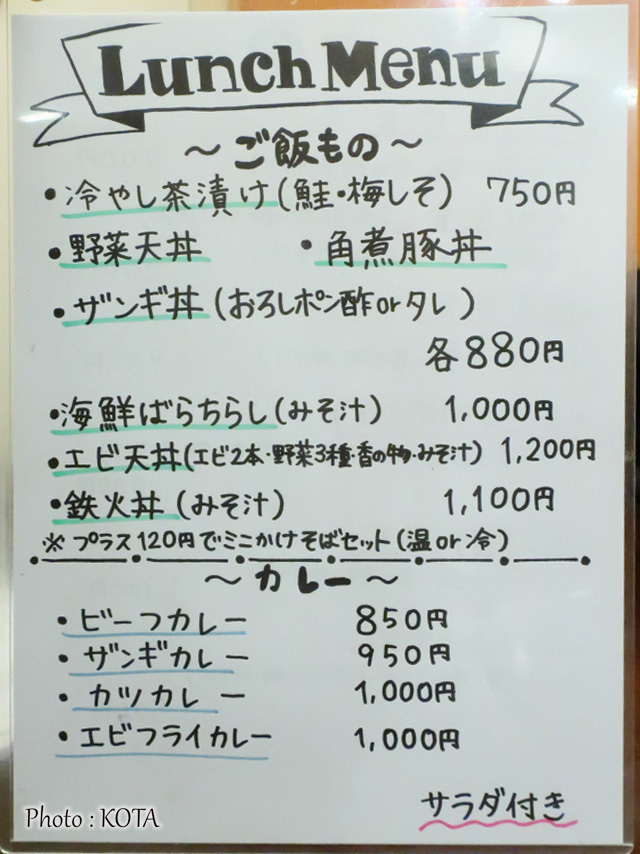 Lunch Menu
～ご飯もの～
・冷やし茶漬け(鮭・梅しそ) 750円
・野菜天丼 ・角煮豚丼
・ザンギ丼(おろしポン酢orタレ)
各880円
・海鮮ばらちらし(みそ汁) 1,000円
・エビ天丼(エビ2本・野菜3種・香の物・みそ汁) 1,200円
・鉄火丼(みそ汁) 1,100円
※プラス120円でミニかけそばセット(温or冷)
～カレー～
・ビーフカレー 850円
・ザンギカレー 950円
・カツカレー 1,000円
・エビフライカレー 1,000円
サラダ付き
Photo : KOTA